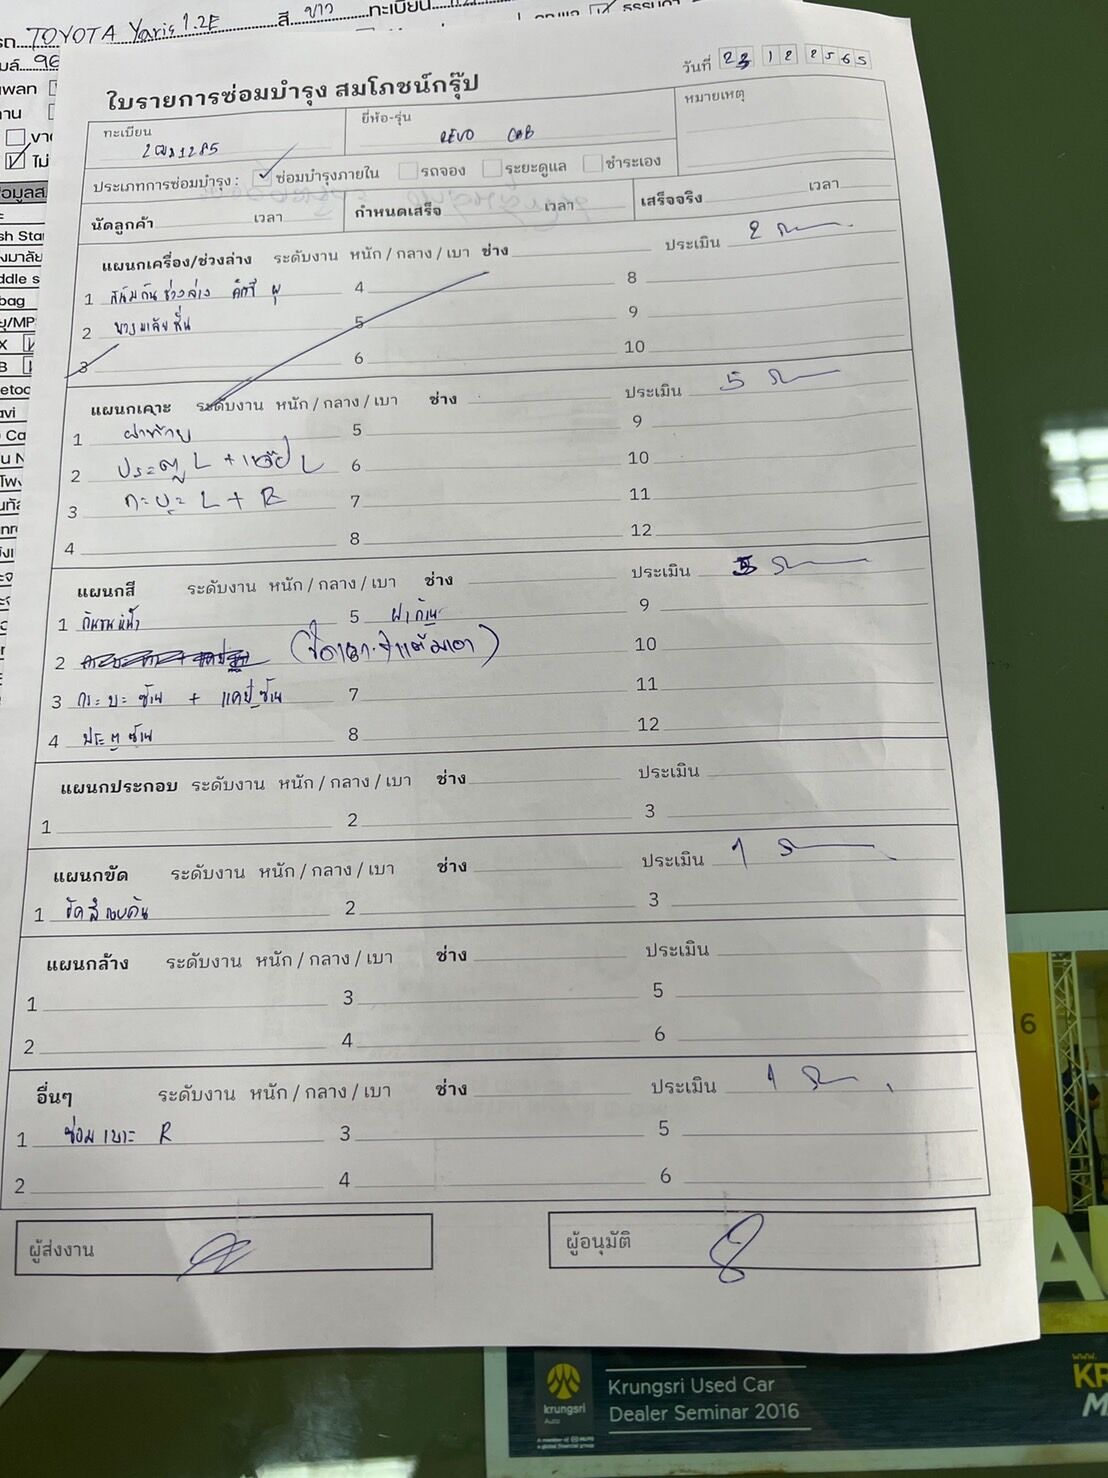 TOYOTA Yaris 1.2E สี ขาว ทะเบียน
ใบรายการซ่อมบำรุง สมโภชน์กรุ๊ป
วันที่ 23 12 2565
ทะเบียน
ยี่ห้อ-รุ่น REVO CAB
หมายเหตุ
ประเภทการซ่อมบำรุง : ซ่อมบำรุงภายใน รถจอง ระยะดูแล ชำระเอง
นัดลูกค้า เวลา กำหนดเสร็จ เวลา เสร็จจริง เวลา
แผนกเครื่อง/ช่วงล่าง ระดับงาน หนัก / กลาง / เบา ช่าง ประเมิน 2
1 สนิมกันช่วงล่าง 4 8
2 พวงมาลัยสั่น 5 9
3 6 10
แผนกเคาะ ระดับงาน หนัก / กลาง / เบา ช่าง ประเมิน 5
1 ฝาท้าย 5 9
2 ประตู L + L 6 10
3 กะบะ L + R 7 11
4 8 12
แผนกสี ระดับงาน หนัก / กลาง / เบา ช่าง ประเมิน
1 กันชนหน้า 5 ฝาท้าย 9
2 10
3 กะบะ ซ้าย + แคปซ้าย 7 11
4 ประตูซ้าย 8 12
แผนกประกอบ ระดับงาน หนัก / กลาง / เบา ช่าง ประเมิน
1 2 3
แผนกขัด ระดับงาน หนัก / กลาง / เบา ช่าง ประเมิน 1
1 ขัดสีรอบคัน 2 3
แผนกล้าง ระดับงาน หนัก / กลาง / เบา ช่าง ประเมิน
1 3 5
2 4 6
อื่นๆ ระดับงาน หนัก / กลาง / เบา ช่าง ประเมิน 1
1 ซ่อมเบาะ R 3 5
2 4 6
ผู้ส่งงาน
ผู้อนุมัติ
krungsri
Auto
Krungsri Used Car
Dealer Seminar 2016